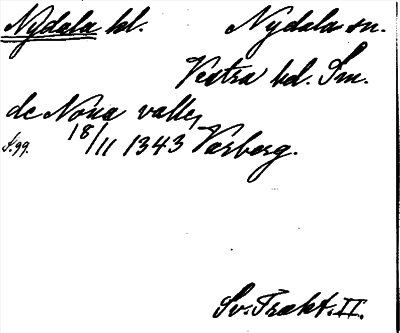 Nydala kl. Nydala sn.
Västra hd. Sm.
de Noua valle,
S. 99. 18/11 1343 Varberg.
Sv. Trakt. II.